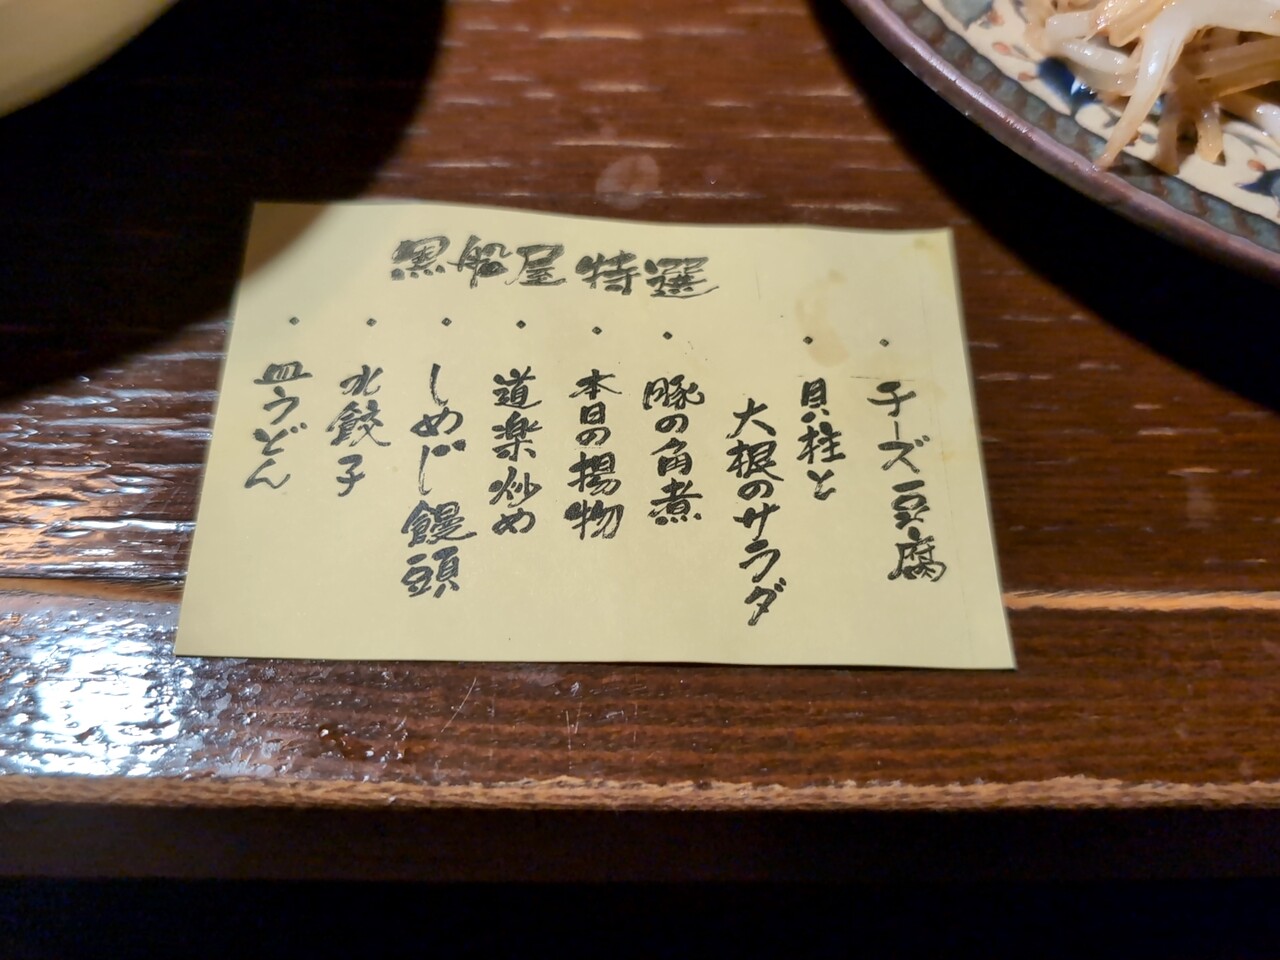 黒船屋 特選
・チーズ豆腐
・貝柱と
大根のサラダ
・豚の角煮
・本日の揚物
・道楽炒め
・しめじ饅頭
・水餃子
・皿うどん